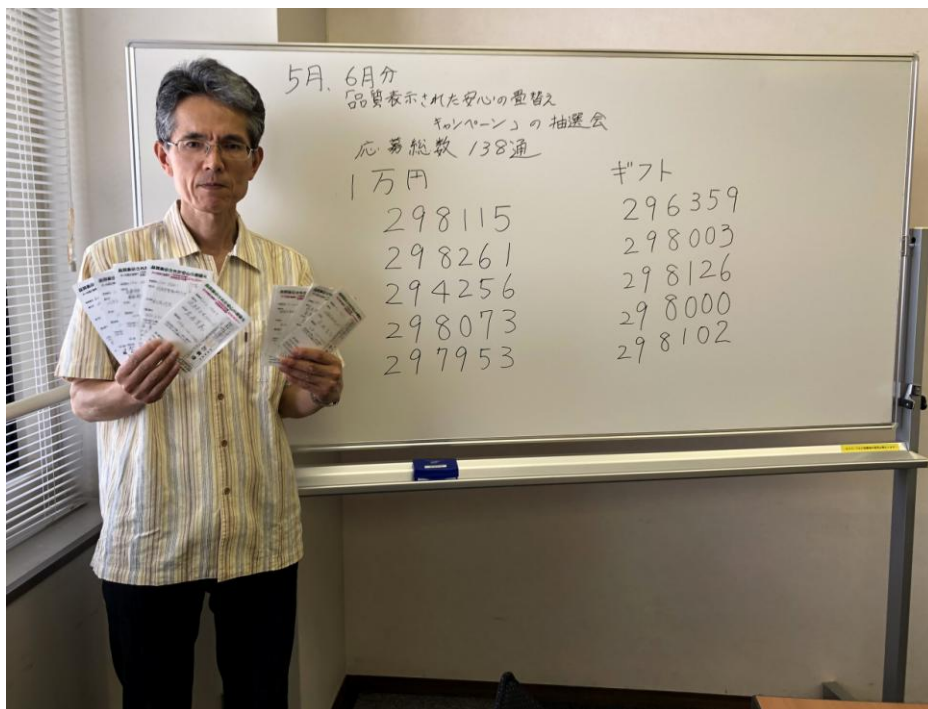 5月、6月分
「品質表示された安心の畳替え
キャンペーン」の抽選会
応募総数 138通
1万円
298115
298261
294256
298073
297953
ギフト
296359
298003
298126
298000
298102